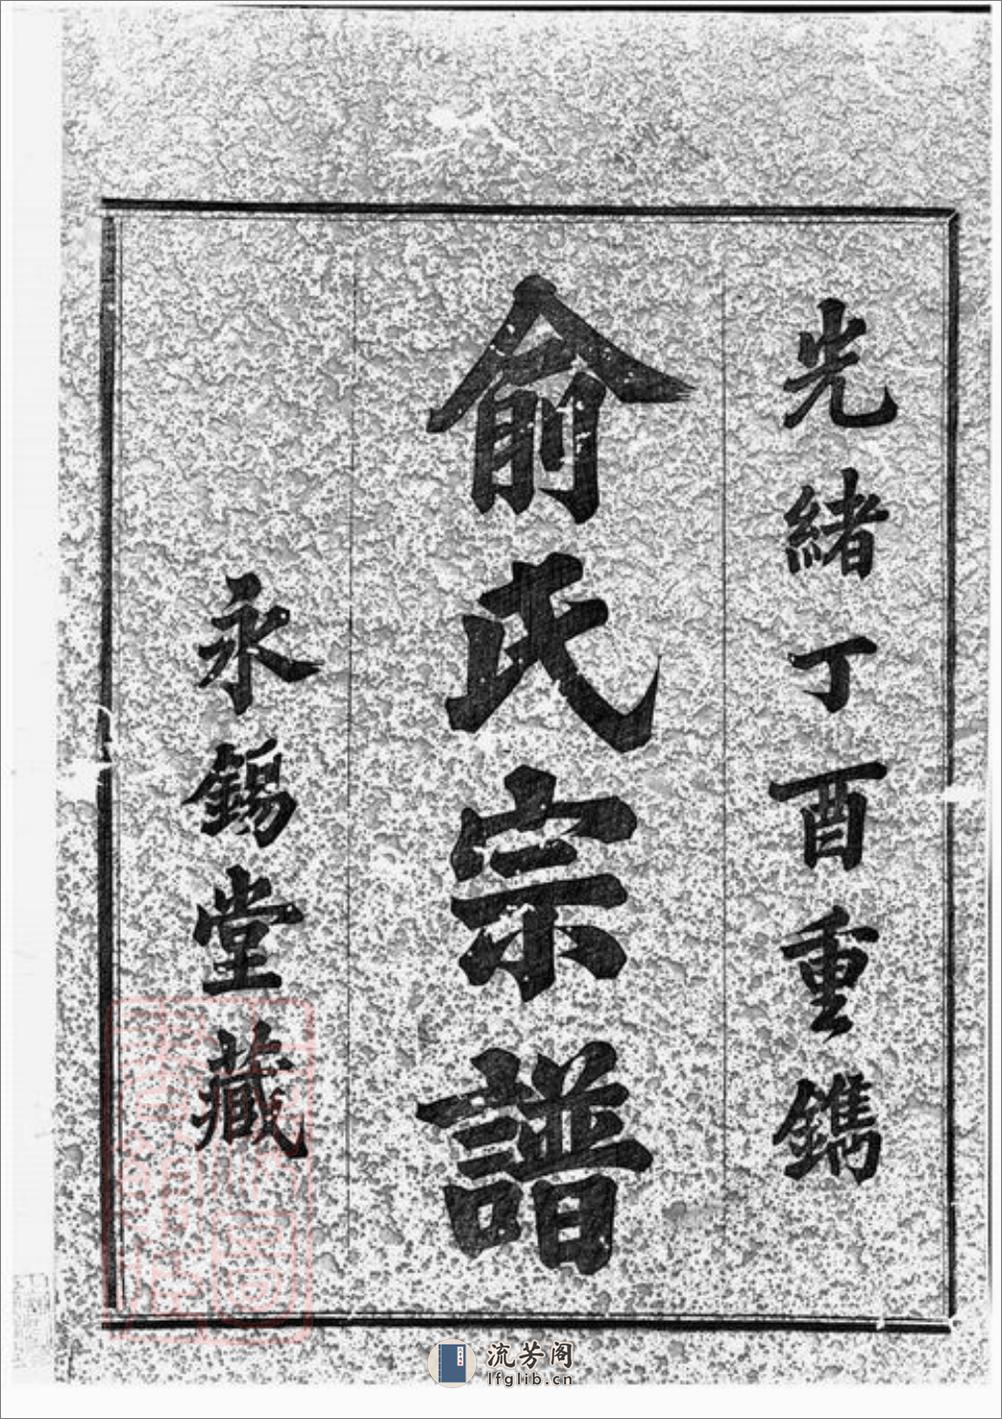 光緒丁酉重鐫
俞氏宗譜
永錫堂藏
流芳阁
lfglib.cn